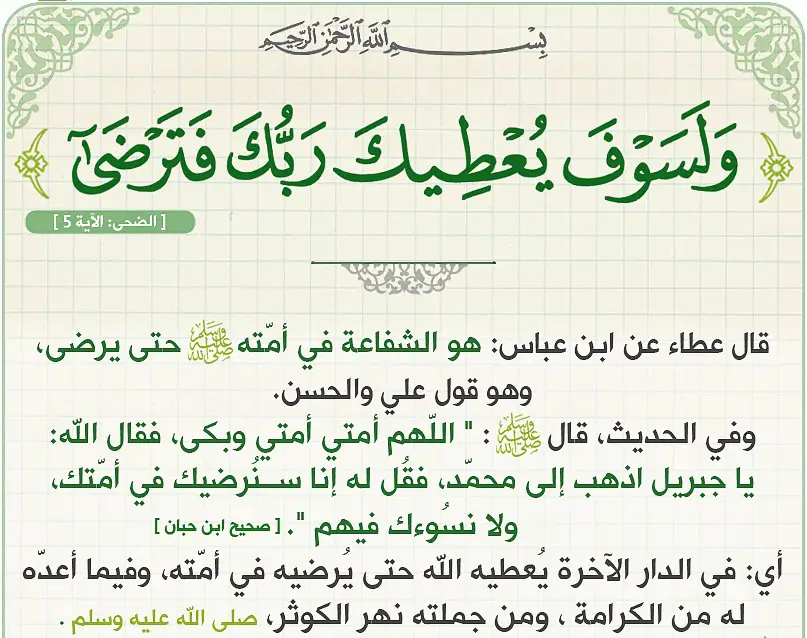 بِسْمِ اللَّهِ الرَّحْمَٰنِ الرَّحِيمِ
وَلَسَوْفَ يُعْطِيكَ رَبُّكَ فَتَرْضَىٰٓ
[ الضحى: الآية 5 ]
قال عطاء عن ابن عباس: هو الشفاعة في أمّته ﷺ حتى يرضى،
وهو قول علي والحسن.
وفي الحديث، قال ﷺ : " اللّهم أمتي أمتي وبكى، فقال الله:
يا جبريل اذهب إلى محمّد، فقُل له إنا سـنُرضيك في أمّتك،
ولا نسُوءك فيهم ". [ صحيح ابن حبان ]
أي: في الدار الآخرة يُعطيه الله حتى يُرضيه في أمّته، وفيما أعدّه
له من الكرامة ، ومن جملته نهر الكوثر، صلى الله عليه وسلم .